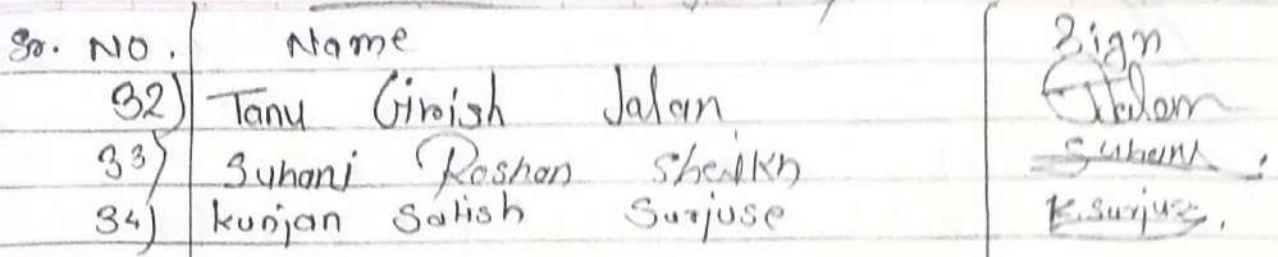 Sr. No. Name Sign
32) Tanu Girish Jalan TJalan
33) Suhani Roshan Sheikh Suhani
34) kunjan Satish Surjuse K.Surjuse.